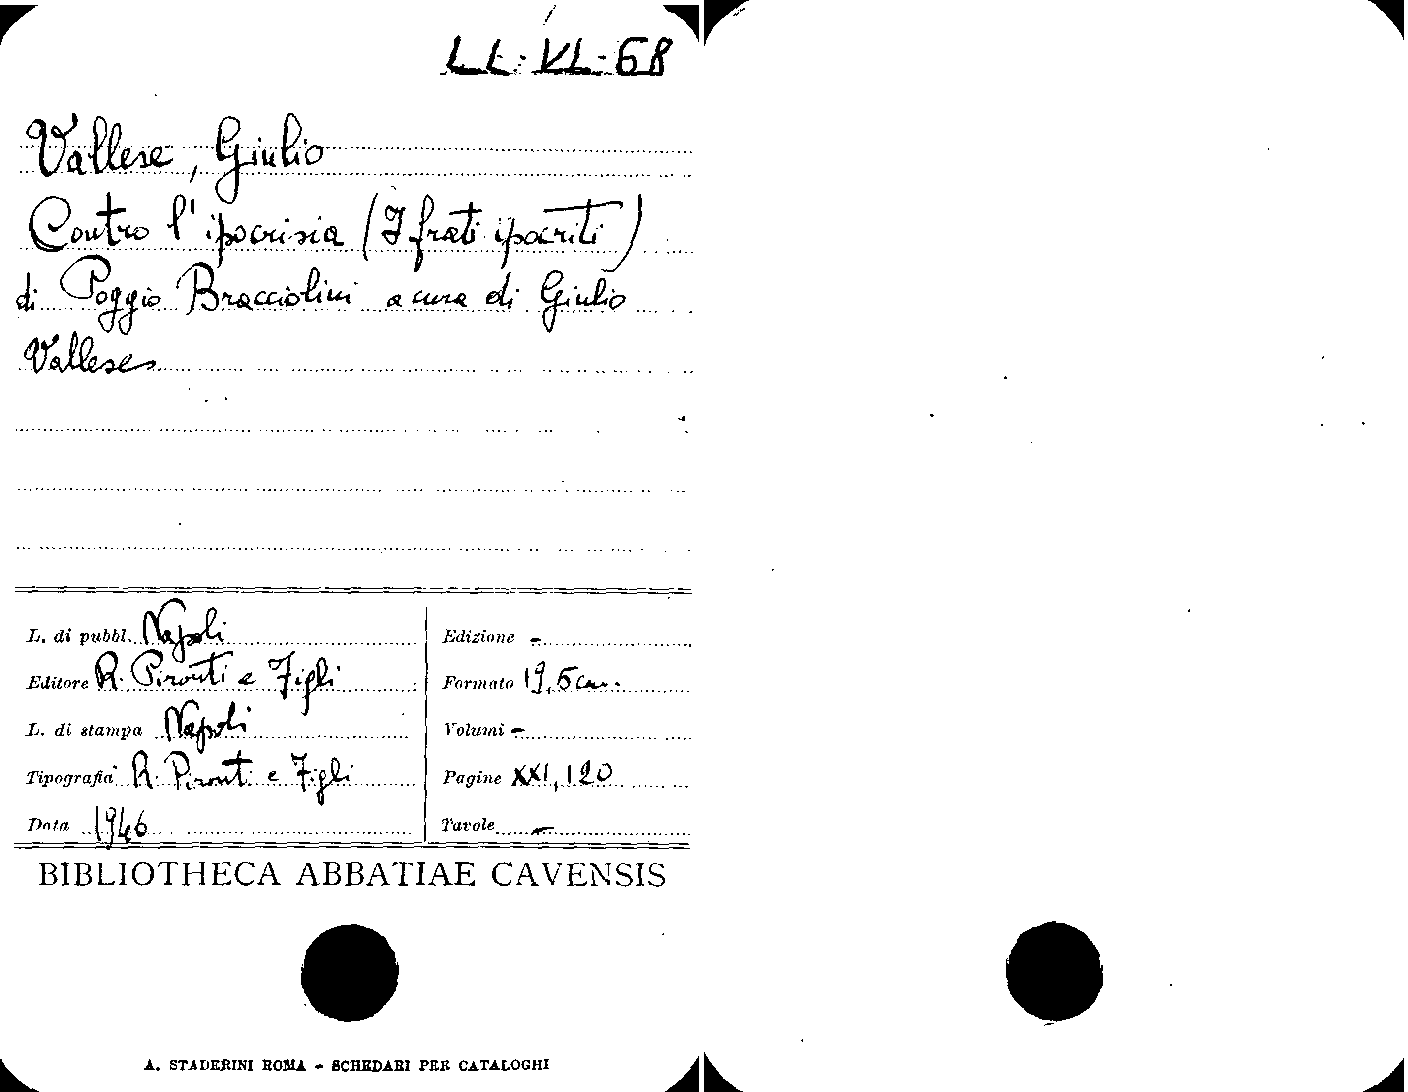 LL-VI-68
Vallese, Giulio
Contro l'ipocrisia (I frati ipocriti)
di Poggio Bracciolini a cura di Giulio
Vallese
L. di pubbl. Napoli
Editore R. Pironti e Figli
L. di stampa Napoli
Tipografia R. Pironti e Figli
Data 1946
Edizione -
Formato 19,5 cm.
Volumi -
Pagine XXI, 120
Tavole -
BIBLIOTHECA ABBATIAE CAVENSIS
A. STADERINI ROMA - SCHEDARI PER CATALOGHI